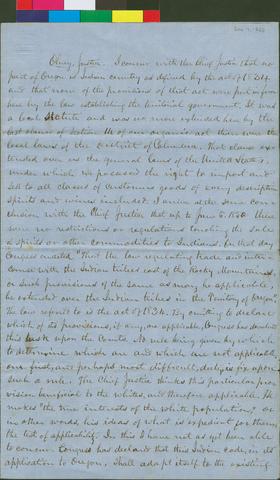 Dec 7, 1853
Olney, Justice. I concur with the Chief Justice that no
part of Oregon is Indian country as defined by the act of 1834.
and that none of the provisions of that act were put in force
here by the law establishing the territorial government. It was
a local statute and was no more extended here by the
last clause of section 14 of our organic act than were the
local laws of the District of Columbia. That clause ex-
tended over us the general laws of the United States,
under which we possessed the right to import and
sell to all classes of customers goods of every description
spirits and wines included. I arrive at the same con-
clusion with the Chief Justice, that up to June 5. 1850 there
were no restrictions or regulations touching the sale
of spirits or other commodities to Indians. On that day
Congress enacted "That the law regulating trade and inter-
course with the Indian tribes east of the Rocky Mountains,
or such provisions of the same as may be applicable,
be extended over the Indian tribes in the Territory of Oregon.
The law referred to is the act of 1834. By omitting to declare
which of its provisions, if any, are applicable, Congress has devolved
this task upon the Courts. No rule being given by which
to determine which are and which are not applicable,
our first, and perhaps most difficult, duty, is to fix upon
such a rule. The Chief Justice thinks this particular pro-
vision beneficial to the whites, and therefore applicable. He
makes "the true interests of the white population," or
in other words, his ideas of what is expedient for them,
the test of applicability. In this I have not as yet been able
to concur. Congress has declared that this Indian code, in its
application to Oregon, shall adapt itself to the existing